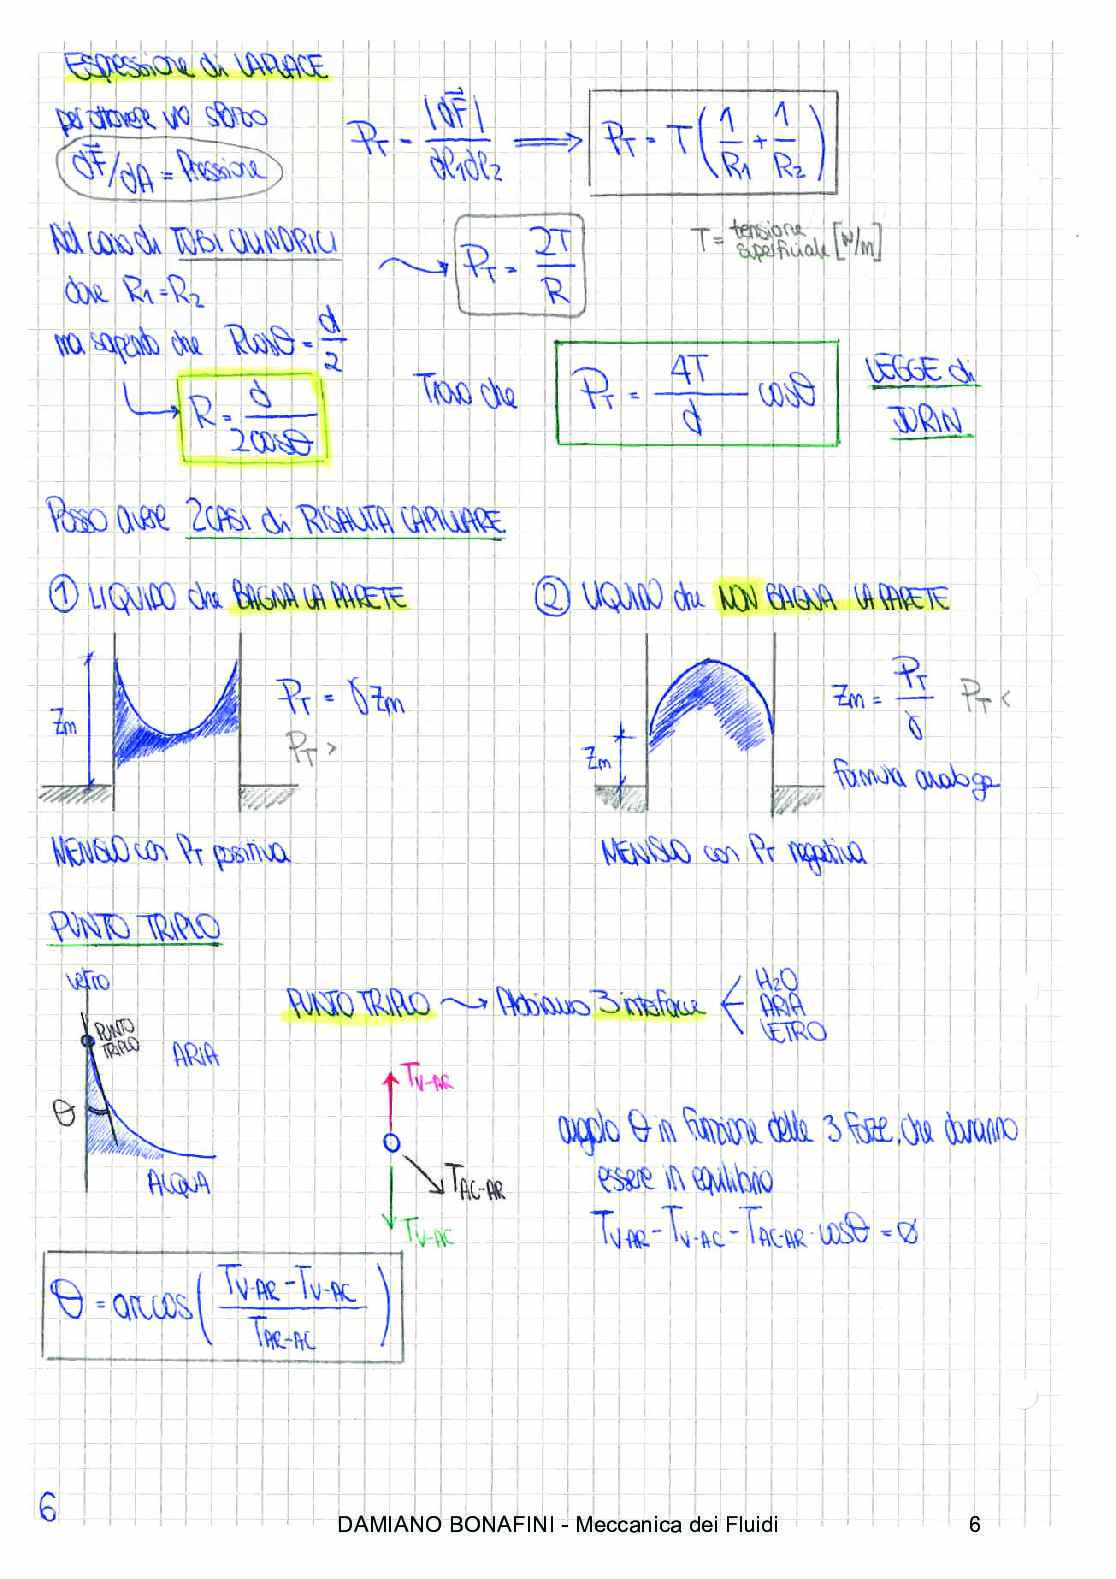 ESPRESSIONE di LAPLACE
per ottenere uno sforzo
dF⃗/dA = Pressione
P_T = |dF⃗| / dl₁dl₂ ⟹ P_T = T(1/R₁ + 1/R₂)
Nel caso di TUBI CILINDRICI
dove R₁=R₂
P_T = 2T/R
T = tensione superficiale [N/m]
ma sapendo che R cosθ = d/2
R = d/2cosθ
Trovo che
P_T = 4T/d cosθ
LEGGE di
JURIN
Posso avere 2 CASI di RISALITA CAPILLARE
① LIQUIDO che BAGNA LA PARETE
Zm
P_T = γZm
P_T >
MENISCO con P_T positiva
② LIQUIDO che NON BAGNA LA PARETE
Zm
Zm = P_T/γ P_T <
formula analoga
MENISCO con P_T negativa
PUNTO TRIPLO
vetro
PUNTO
TRIPLO
ARIA
θ
ACQUA
PUNTO TRIPLO → Abbiamo 3 interfacce
H₂O
ARIA
VETRO
T_V-AR
T_AC-AR
T_V-AC
angolo θ in funzione delle 3 forze, che dovranno
essere in equilibrio
T_V-AR - T_V-AC - T_AC-AR · cosθ = ∅
θ = arccos( (T_V-AR - T_V-AC) / T_AR-AC )
6
DAMIANO BONAFINI - Meccanica dei Fluidi 6